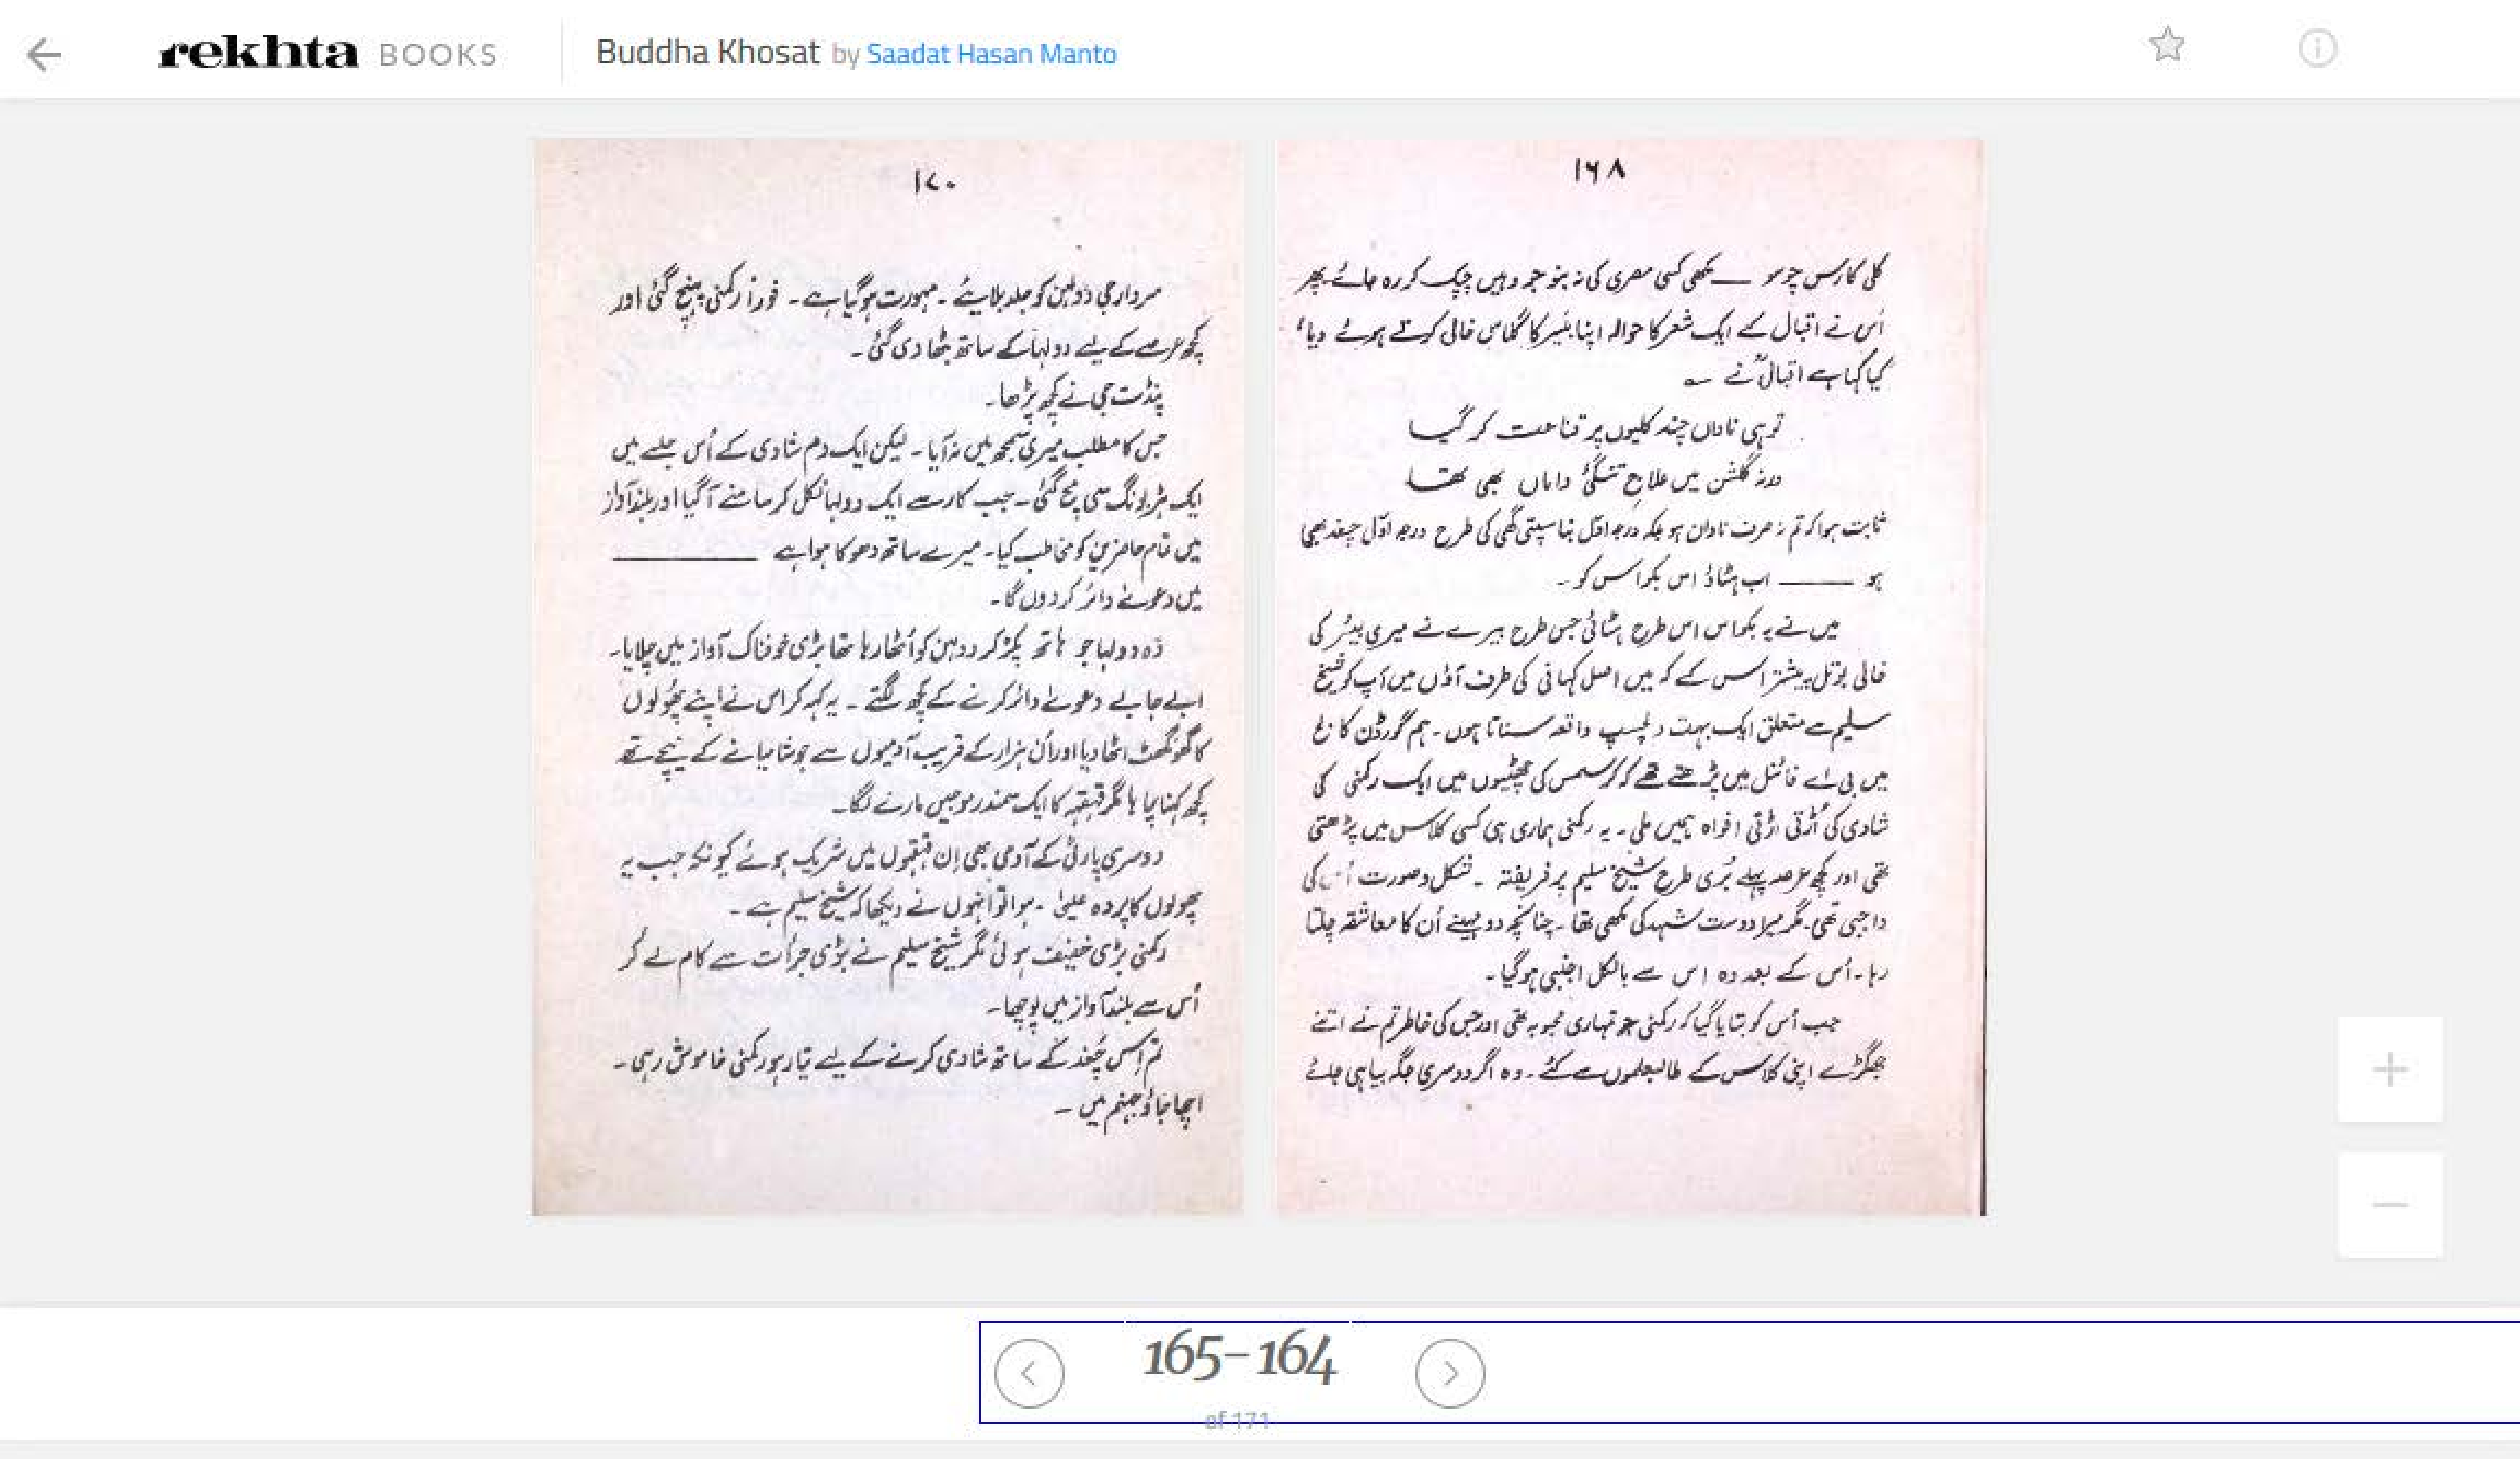 rekhta BOOKS
Buddha Khosat by Saadat Hasan Manto
۱۶۸
کلی کا رس چوسو ــــ مکھی کسی مصری کی نہ بنو جو وہیں چپک کر رہ جائے۔ پھر
اُس نے اقبال کے ایک شعر کا حوالہ اپنا بیئر کا گلاس خالی کرتے ہوئے دیا،
کیا کہا ہے اقبالؒ نے ؎
تو ہی ناداں چند کلیوں پر قناعت کر گیا
ورنہ گلشن میں علاجِ تنگیٔ داماں بھی تھا
ثابت ہوا کہ تم نہ صرف نادان ہو بلکہ درجہ اوّل بناسپتی گھی کی طرح درجہ اوّل چغد بھی
ہو ــــــــ اب ہٹاؤ اس بکواس کو۔
میں نے یہ بکواس اس طرح ہٹائی جس طرح بیرے نے میری بیئر کی
خالی بوتل پیشتر اس کے کہ میں اصل کہانی کی طرف آؤں میں آپ کو شیخ
سلیم سے متعلق ایک بہت دلچسپ واقعہ سناتا ہوں۔ ہم گورڈن کالج
میں بی اے فائنل میں پڑھتے تھے کہ کرسمس کی چھٹیوں میں ایک رکمنی کی
شادی کی اُڑتی اڑتی افواہ ہمیں ملی۔ یہ رکمنی ہماری ہی کسی کلاس میں پڑھتی
تھی اور کچھ عرصہ پہلے بُری طرح شیخ سلیم پر فریفتہ ۔ شکل و صورت اُس کی
واجبی تھی۔ مگر میرا دوست شہد کی مکھی تھا۔ چنانچہ دو مہینے اُن کا معاشقہ چلتا
رہا۔ اُس کے بعد وہ اس سے بالکل اجنبی ہو گیا۔
جب اُس کو بتایا گیا کہ رکمنی جو تمہاری محبوبہ تھی اور جس کی خاطر تم نے اتنے
جھگڑے اپنی کلاس کے طالبعلموں سے کئے۔ وہ اگر دوسری جگہ بیاہی جائے
۱۷۰
سردار جی دولہن کو جلد بلایئے ۔ مہورت ہو گیا ہے۔ فوراً رکمنی پہنچ گئی اور
کچھ عرصے کے لیے دولہا کے ساتھ بٹھا دی گئی۔
پنڈت جی نے کچھ پڑھا۔
جس کا مطلب میری سمجھ میں نہ آیا۔ لیکن ایک دم شادی کے اُس جلسے میں
ایک ہڑبونگ سی مچ گئی۔ جب کار سے ایک دولہا نکل کر سامنے آگیا اور بلند آواز
میں تمام حاضرین کو مخاطب کیا۔ میرے ساتھ دھوکا ہوا ہے ــــــــــــ
میں دعوےٰ دائر کر دوں گا۔
وُہ دولہا جو ہاتھ پکڑ کر دوہن کو اُٹھا رہا تھا بڑی خوفناک آواز میں چلایا۔
ابے جا بے دعوےٰ دائر کرنے کے کچھ لگتے ۔ یہ کہہ کر اس نے اپنے پھُولوں
کا گھونگھٹ اٹھا دیا اور اُن ہزار کے قریب آدمیوں سے جو شامیانے کے نیچے تھے
کچھ کہنا چاہا مگر قہقہہ کا ایک سمندر موجیں مارنے لگا۔
دوسری پارٹی کے آدمی بھی اِن قہقہوں میں شریک ہوئے کیونکہ جب یہ
پھولوں کا پردہ علیحٰدہ ہوا تو اُنہوں نے دیکھا کہ شیخ سلیم ہے۔
رکمنی بڑی خفیف ہوئی مگر شیخ سلیم نے بڑی جرأت سے کام لے کر
اُس سے بلند آواز میں پوچھا۔
تم اِس چُغد کے ساتھ شادی کرنے کے لیے تیار ہو رکمنی خاموش رہی۔
اچھا جاؤ جہنم میں ۔
165-164
of 171